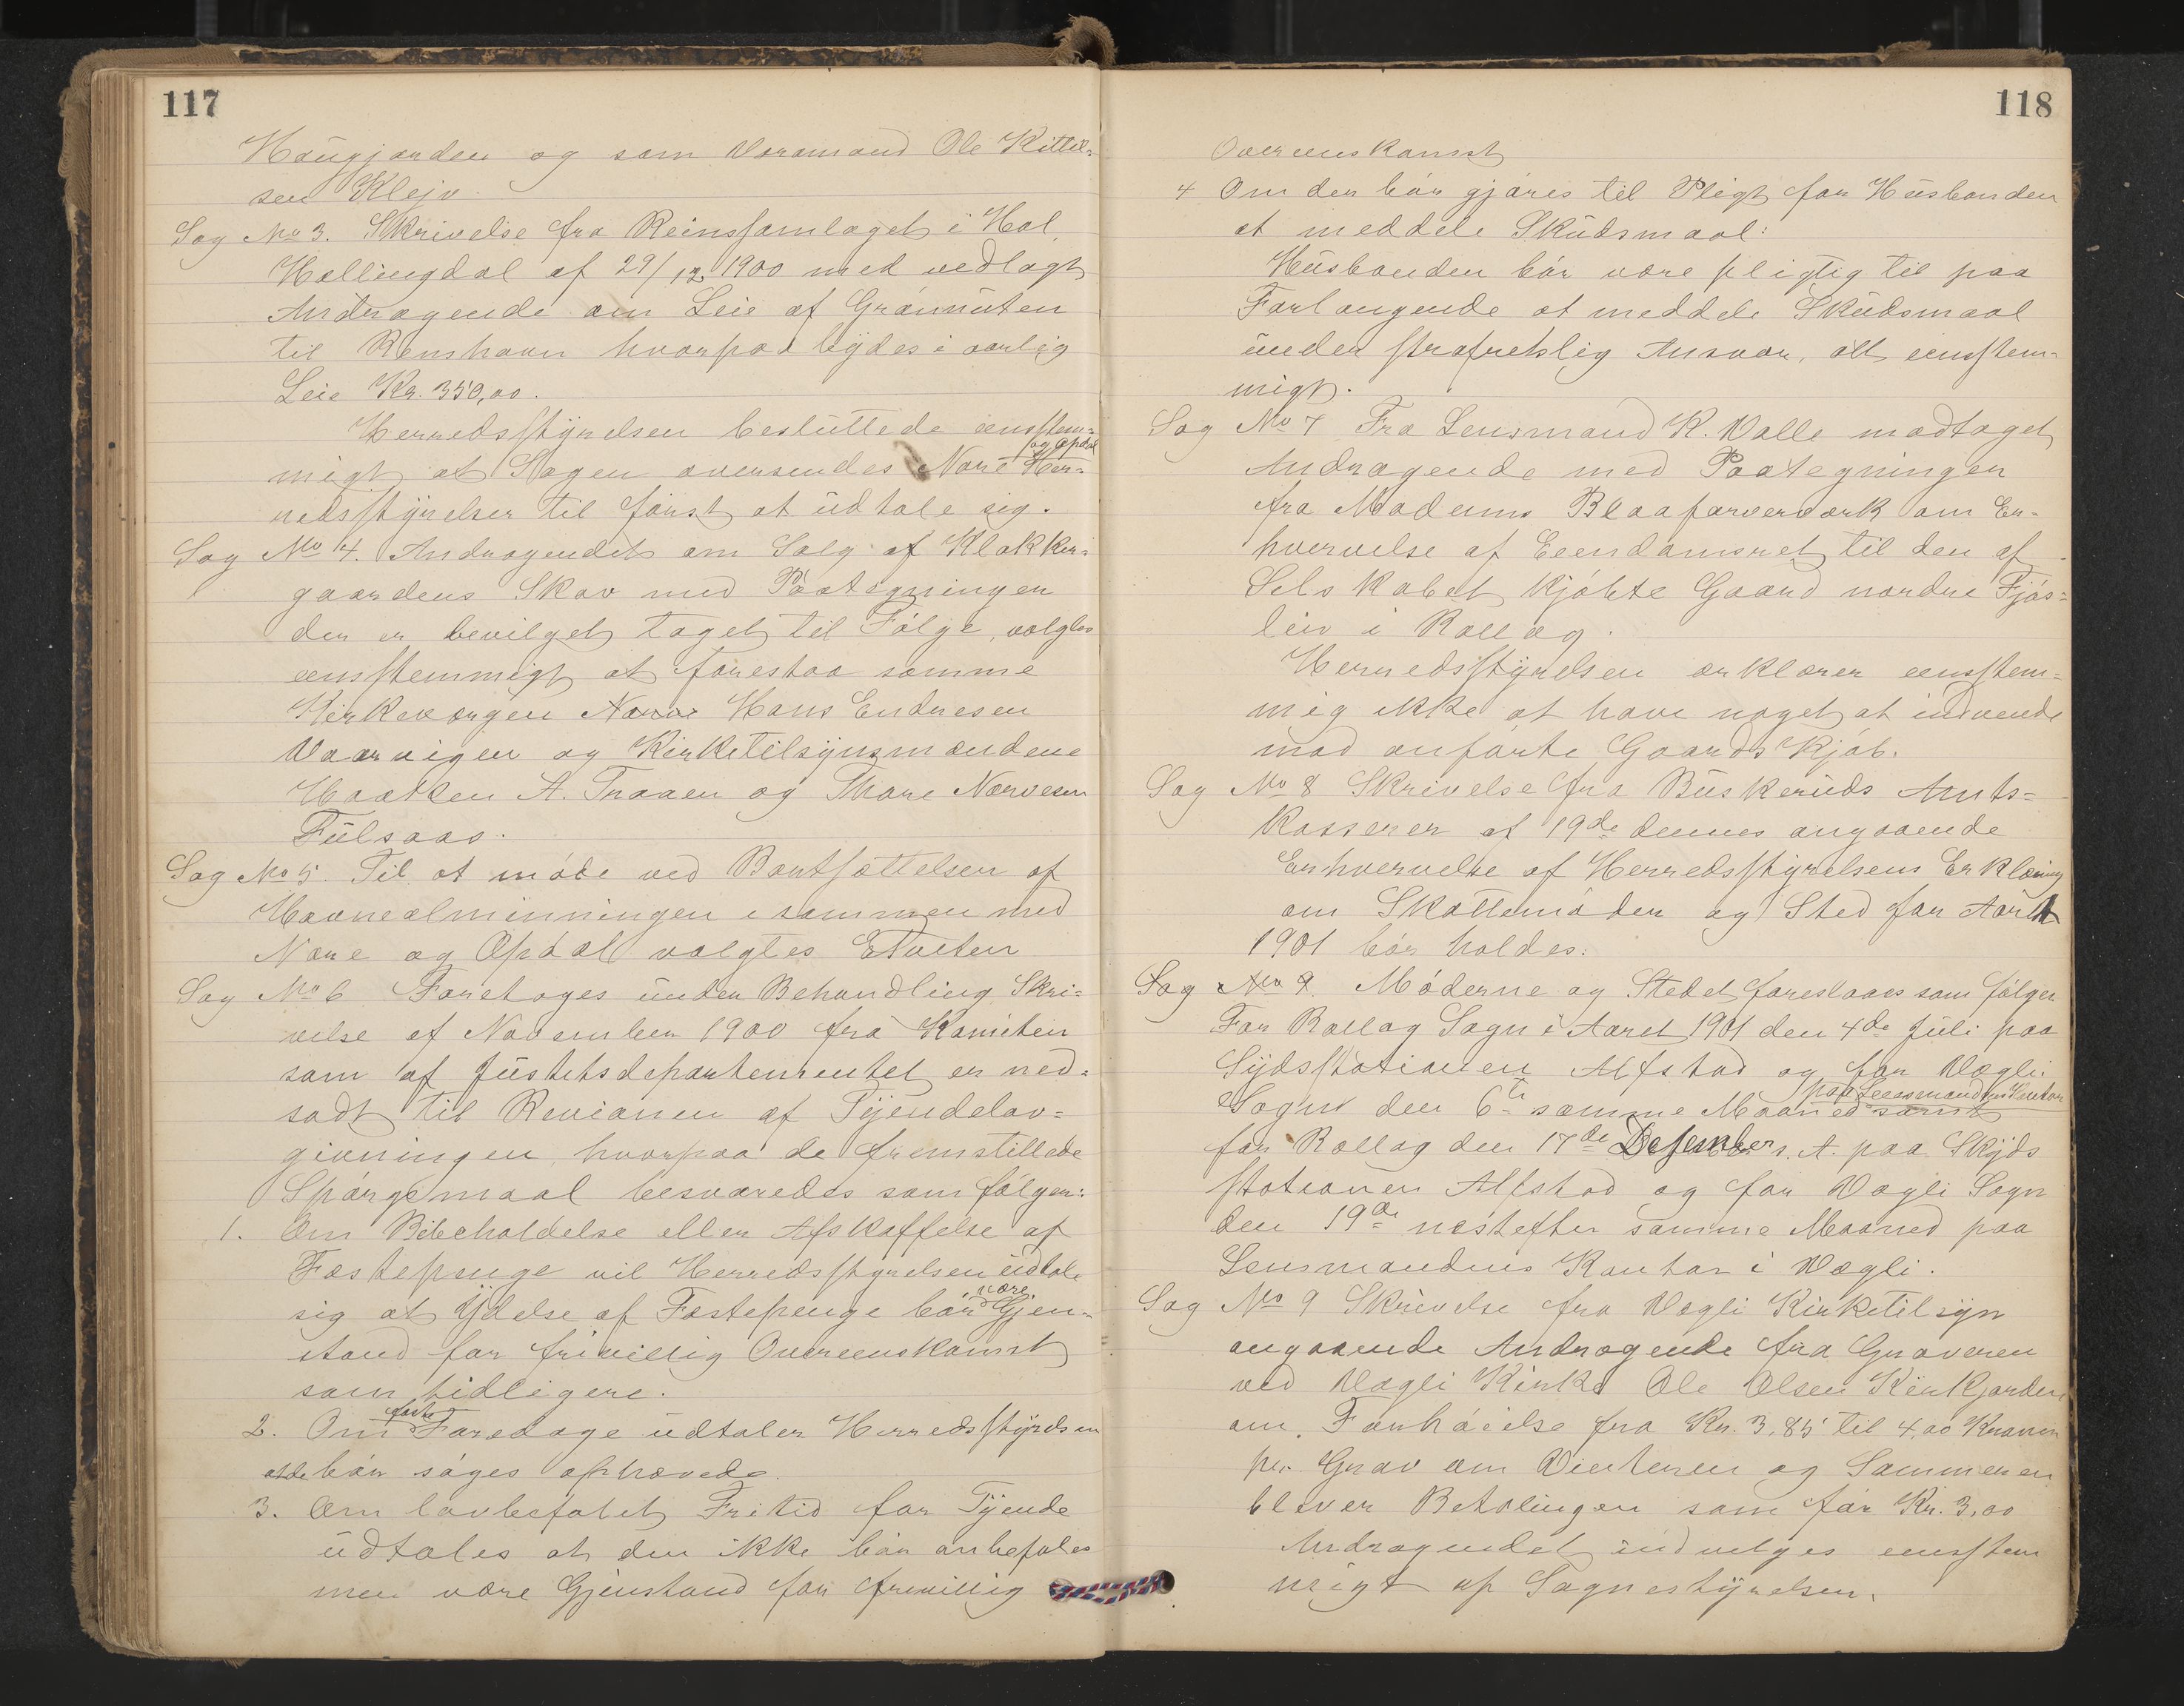 117
Haugjorden og som Varamand Ole Kittil=
sen Klejv.
Sag No 3. Skrivelse fra Reinssamlaget i Hol,
Hallingdal af 29/12 1900 med vedlagt
Andragende om Leie af Grønnuten
til Renshavn hvorpaa bydes i aarlig
Leie Kr. 350,00.
Herredsstyrelsen besluttede eensstem=
og Opdal
migt at Sagen oversendes Nore Her=
redsstyrelser til først at udtale sig.
Sag No 4. Andragendet om Salg af Klokker=
gaardens Skov med Paategningen
der er bevilget taget til Følge, valgtes
eensstemmigt at forestaa samme
Kirkeværgen Hans Endresen
Vaarvigen og Kirketilsynsmændene
Haaken A. Traaen og Thore Narvesen
Fulsaas.
Sag No 5. Til at møde ved Bortsættelsen af
Havnealminningen isammen med
Nore og Opdal valgtes E Tveten
Sag No 6 Foretoges under Behandling Skri=
velse af November 1900 fra Komiteen
som af Justitsdepartementet er ned=
sadt til Revionen af Tyendelov=
givningen, hvorpaa de fremstillede
Spørgsmaal besvaredes som følger:
1. Om Bibeholdelse eller Afskaffelse af
Fæstepenge vil Herredsstyrelsen udtale
være
sig at Ydelse af Fæstepenge bør Gjen=
stand for frivillig Overeenskomst
som tidligere.
faste
2. Om Faredage udtaler Herredsstyrelsen
at de bør søges ophævede.
3. Om lovbefalet Fritid for Tyende
udtales at den ikke bør anbefales
men være Gjenstand for frivillig
118
Overeenskomst
4 Om der bør gjøres til Pligt for Husbonden
at meddele Skudsmaal:
Husbonden bør være pligtig til paa
Forlangende at meddele Skudsmaal
under strafretslig Ansvar, alt eensstem=
migt.
Sag No 7 Fra Lensmand K. Valle modtaget
Andragende med Paategningen
fra Modums Blaafarveværk om Er=
hvervelse af Eeendomsret til den af
Selskabet kjøbte Gaard nordre Fjøs=
lien i Rollag.
Herredsstyrelsen erklærer eensstem=
mig ikke at have noget at indvende
mod anførte Gaards Kjøb.
Sag No 8 Skrivelse fra Buskeruds Amts=
kasserer af 19de dennes angaaende
Erhvervelse af Herredsstyrelsens Erklæring
om Skattemøder og Sted for Aaret
1901 bør holdes.
Sag No 9. Møderne og Stedet foreslaaes som følger
For Rollag Sogn i Aaret 1901 den 4de Juli paa
Sydsstationen Alfstad og for Vægli
paa Leensmandens Kontor
Sogn den 6te samme Maaned samt
for Rollag den 17de Desember s. A. paa Skyds
stationen Alfstad og for Vægli Sogn
den 19de næstefter samme Maaned paa
Lensmandens Kontor i Vægli.
Sag No 9 Skrivelse fra Vægli Kirketilsyn
angaaende Andragende fra Graveren
ved Vægli Kirke Ole Olsen Kirkjorden
om Forhøielse fra Kr. 3,85 til 4,00 Kroner
pr. Grav om Vinteren og Sommeren
bliver Betalingen som før Kr. 3,00
Andragendet indvilges eensstem
migt af Sognestyrelsen.